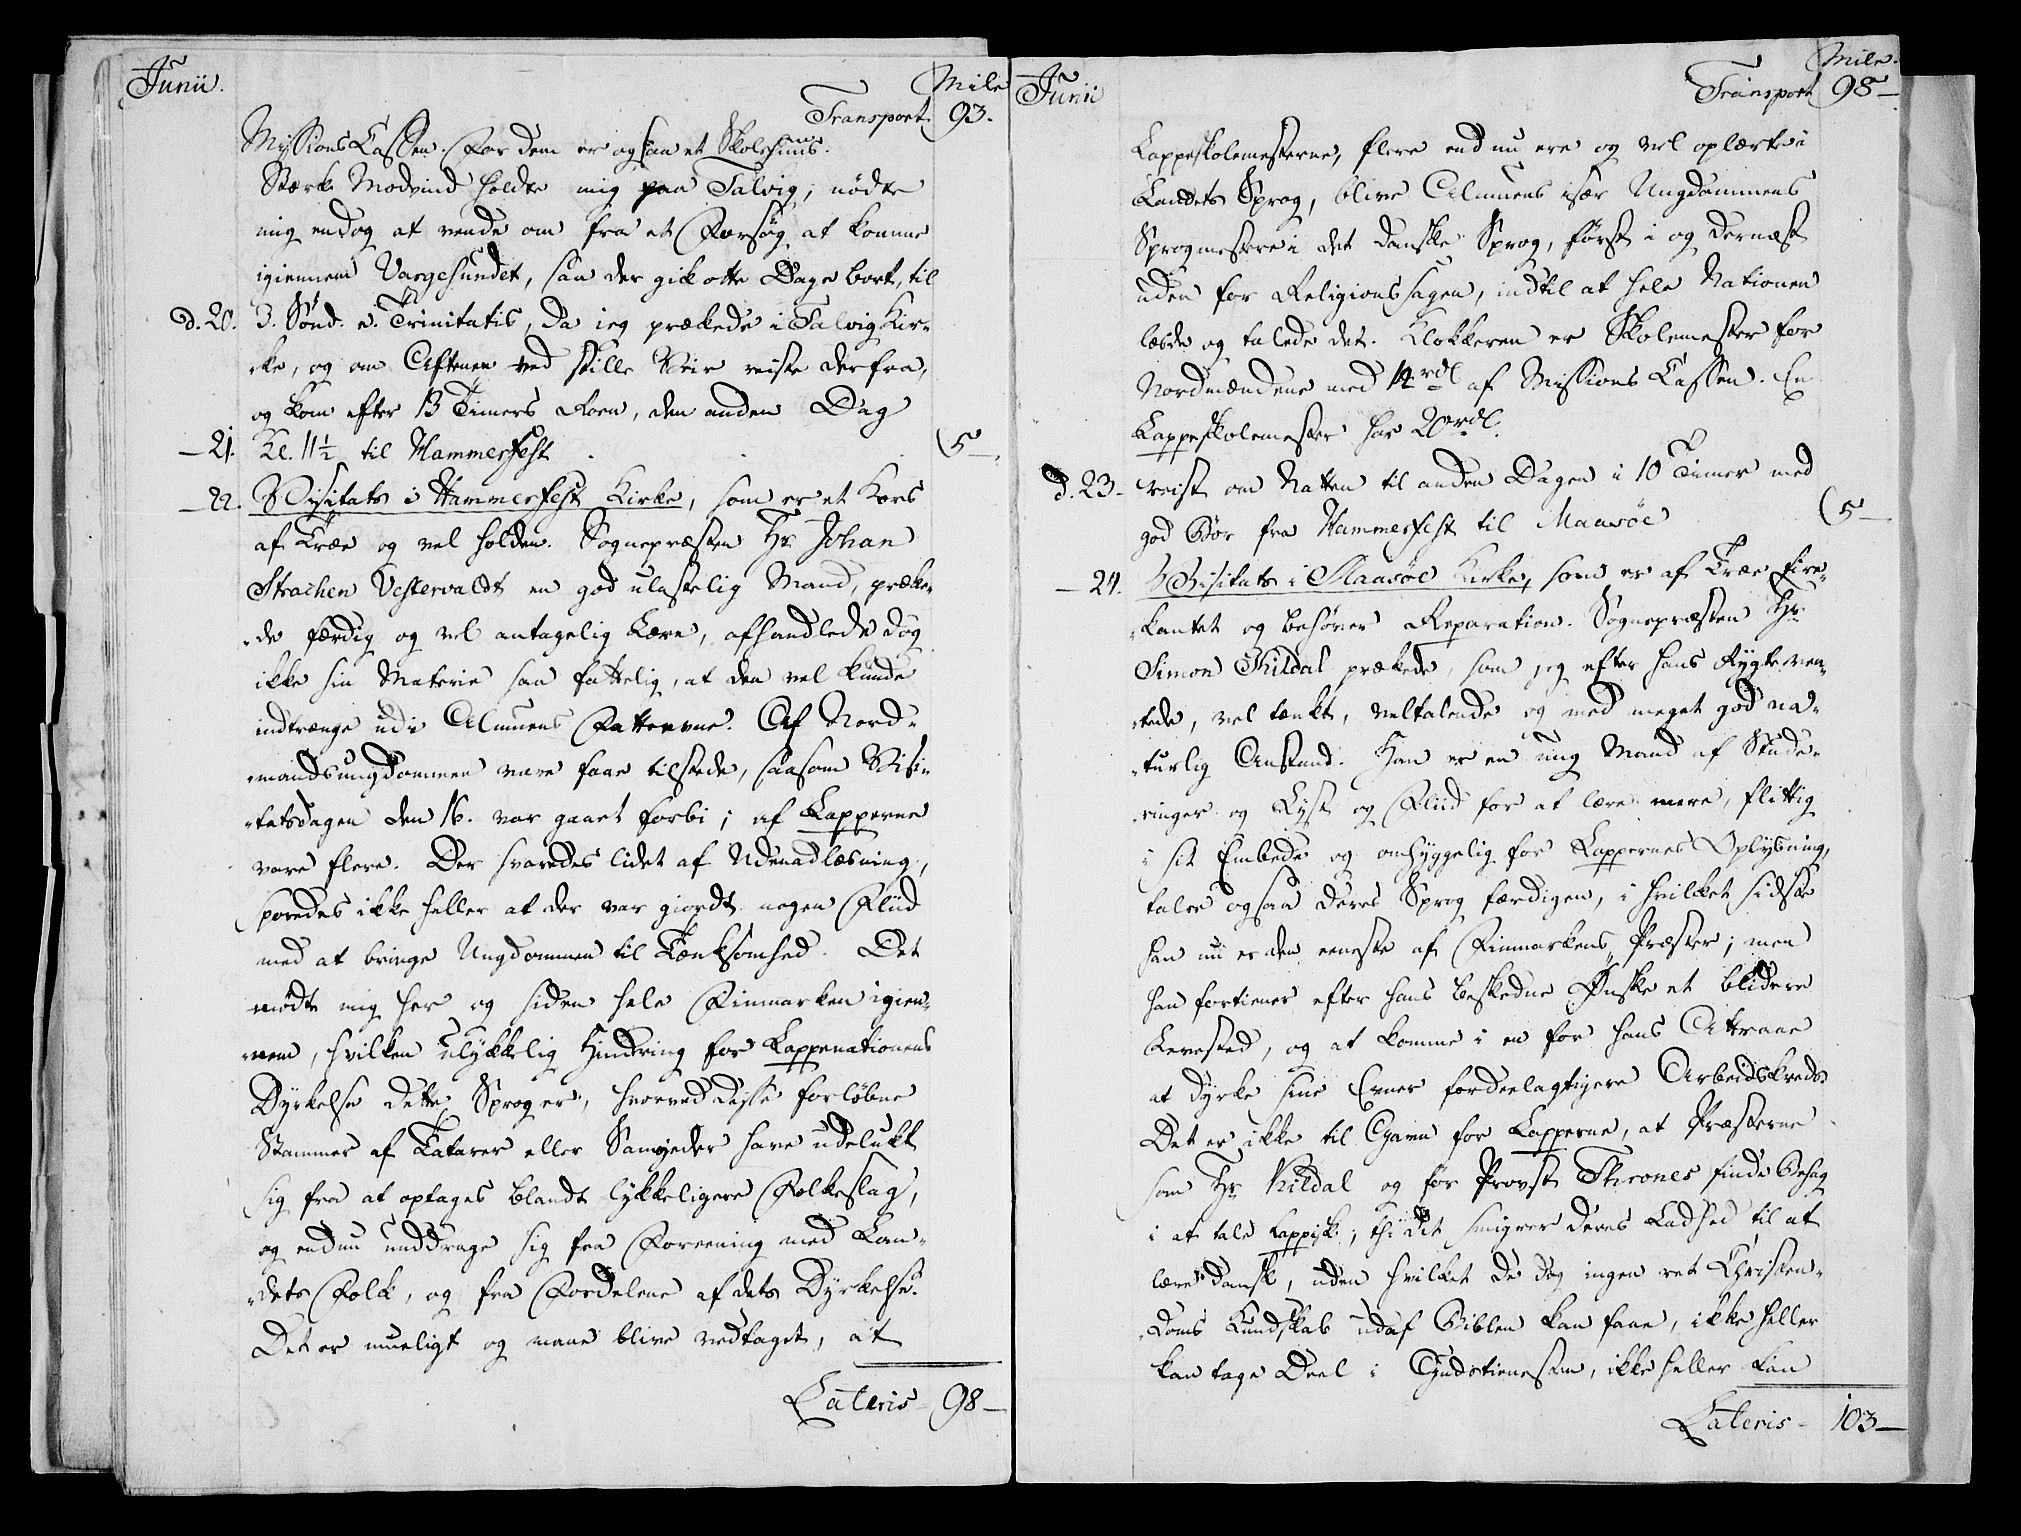 Junii. Mile
Transport 93.
MissionsCassen. For dem er ogsaa et Skolehuus.
Stærk Modvind holdte mig paa Talvig, nødte
mig endog at vende om fra et Forsøg at komme
igiennem Vargesundet, saa der gik otte Dage bort, til
d. 20. 3. Sønd. e. Trinitatis, da ieg prækede i Talvig Kir-
ke, og om Aftenen ved stille Veir reiste derfra,
og kom efter 13 Timers Roen, den anden Dag
— 21. Kl. 11½ til Hammerfest . . . 5—.
— 22. Visitats i Hammerfest Kirke, som er et Kors
af Træe og vel holden. Sognepræsten Hr. Johan
Strachen Vestervaldt en god ulastelig Mand, præke-
-de færdig og vel antagelig Lære, afhandlede dog
ikke sin Materie saa fattelig, at den vel kunde
indtrænge udi Almuens Fatteevne. Af Nord-
-mandsungdommen vare faae tilstede, saasom Visi-
-tatsdagen den 16. var gaaet forbi; af Lapperne
vare flere. Der svaredes lidet af Udenadlæsning,
sporedes ikke heller at der var giordt nogen Fliid
med at bringe Ungdommen til Tænksomhed. Det
mødte mig her og siden hele Finmarken igien-
-nem, hvilken ulykkelig Hindring for Lappenationens
Dyrkelse dette Sprog er, hvorved disse forløbne
Stammer af Tatarer eller Samojeder have udelukt
sig fra at optages blandt lykkeligere Folkeslag,
og endnu unddrage sig fra Foreening med Lan-
-dets Folk, og fra Fordelene af dets Dyrkelse.
Det er mueligt og maae blive vedtaget, at
Lateris - 98—
Junii Mile.
Transport 98—
Lappeskolemesterne, flere end nu ere og vel oplærte i
Landets Sprog, blive Almuens især Ungdommens
Sprogmestere i det danske Sprog, først i og dernæst
uden for Religionssagen, indtil at hele Nationen
læsde og talede det. Klokkeren er Skolemester for
Nordmændene med 14 rdl af Missions Cassen. En
Lappeskolemester har 20 rdl.
d. 23- reist om Natten til anden Dagen i 10 Timer med
god Bør fra Hammerfest til Maasøe 5—
— 24. Visitats i Maasøe Kirke, som er af Træe fire-
-kantet og behøver Reparation. Sognepræsten Hr
Simon Kildal prækede, som jeg efter hans Rygte ven-
-tede, vel tænkt, veltalende og med meget god na-
-turlig Anstand. Han er en ung Mand af Stude-
-ringer og Lyst og Fliid for at lære mere, flittig
i sit Embede og omhyggelig for Lappernes Oplysning,
taler ogsaa deres Sprog færdigen, i hvilket sidste
han nu er den eeneste af Finmarkens Præster; men
han fortiener efter hans beskedne Ønske et blidere
Levested, og at komme i en for hans Attraae
at dyrke sine Evner fordeelagtigere Arbeidskreds
Det er ikke til Gavn for Lapperne, at Præsterne
som Hr Kildal og før Provst Thrones finde Behag
i at tale Lappisk; thi det smigrer deres Ladhed til at
lære dansk, uden hvilket de dog ingen ret Christen-
-doms Kundskab udaf Biblen kan faae, ikke heller
kan tage Deel i Gudstienesten, ikke heller kan
Lateris - 103—